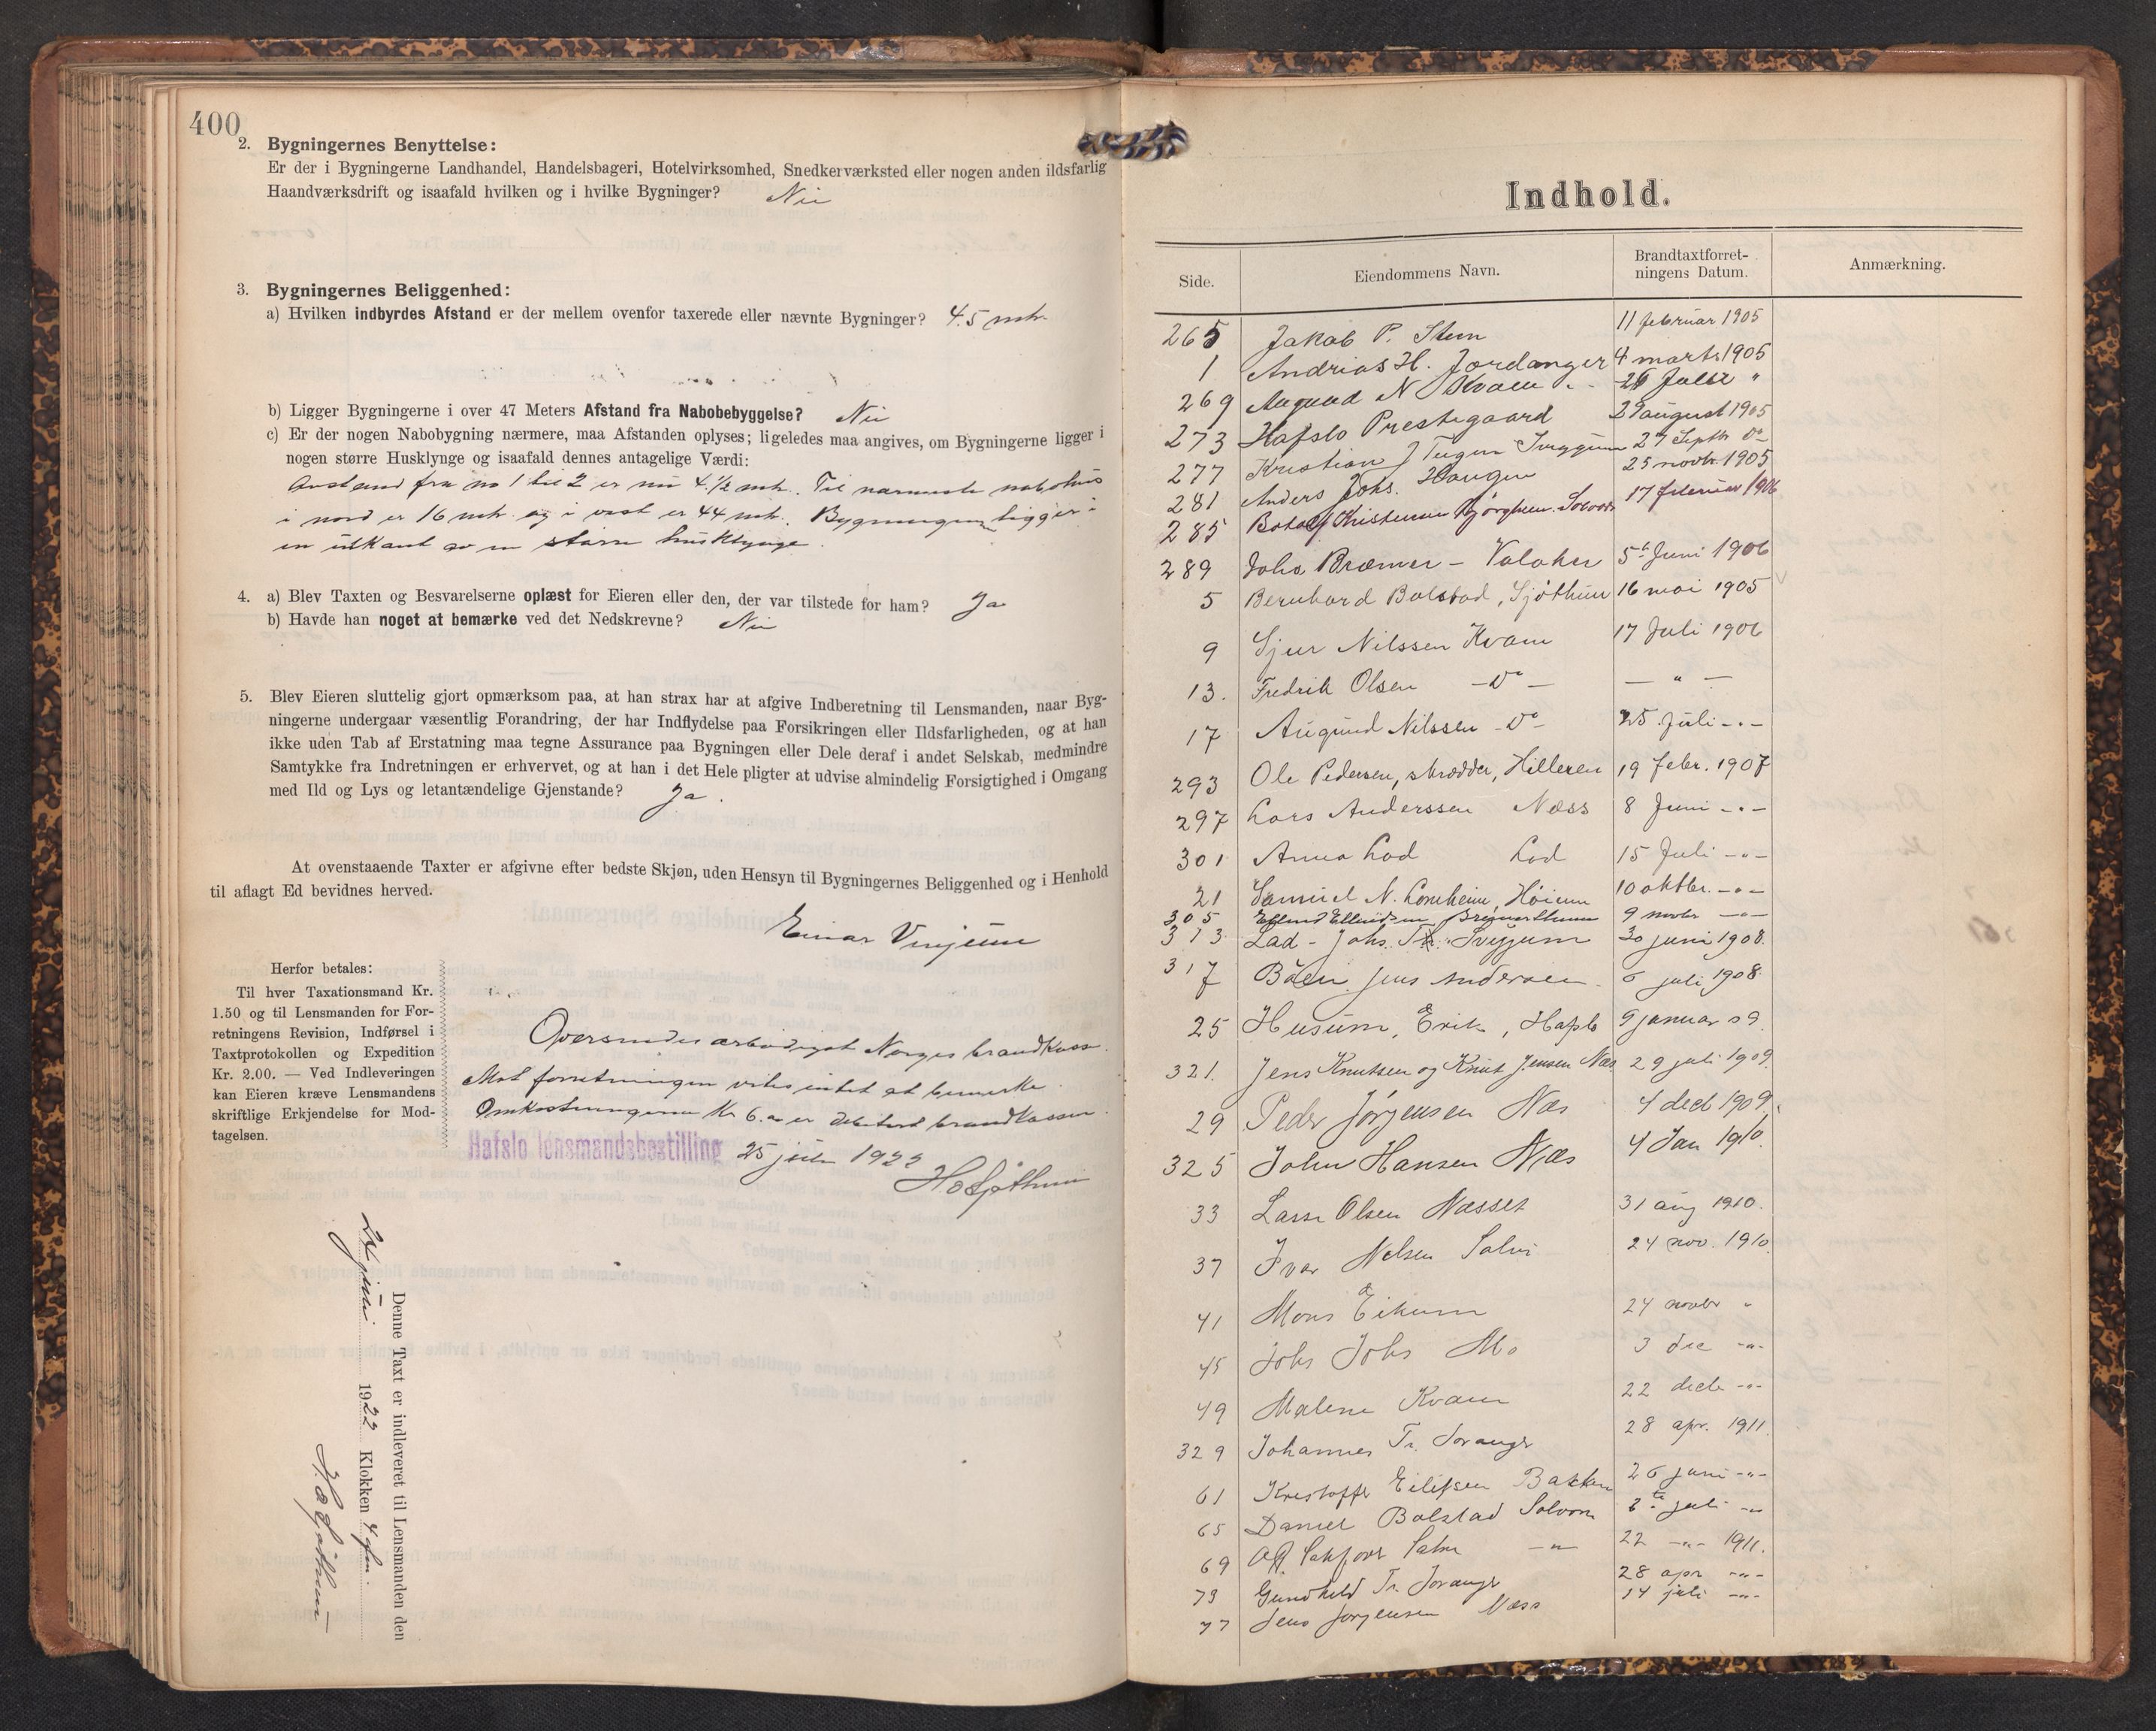 400
2. Bygningernes Benyttelse:
Er der i Bygningerne Landhandel, Handelsbageri, Hotelvirksomhed, Snedkerværksted eller nogen anden ildsfarlig
Haandværksdrift og isaafald hvilken og i hvilke Bygninger? Nei
3. Bygningernes Beliggenhed:
a) Hvilken indbyrdes Afstand er der mellem ovenfor taxerede eller nævnte Bygninger? 4.5 mtr.
b) Ligger Bygningerne i over 47 Meters Afstand fra Nabobebyggelse? Nei
c) Er der nogen Nabobygning nærmere, maa Afstanden oplyses; ligeledes maa angives, om Bygningerne ligger i
nogen større Husklynge og isaafald dennes antagelige Værdi:
Avstand fra no 1 til 2 er nu 4.½ mtr. Til nærmeste nabohus
i nord er 16 mtr. og i vest er 44 mtr. Bygningen ligger i
en utkant av en større husklynge.
4. a) Blev Taxten og Besvarelserne oplæst for Eieren eller den, der var tilstede for ham? Ja
b) Havde han noget at bemærke ved det Nedskrevne? Nei
5. Blev Eieren sluttelig gjort opmærksom paa, at han strax har at afgive Indberetning til Lensmanden, naar Byg-
ningerne undergaar væsentlig Forandring, der har Indflydelse paa Forsikringen eller Ildsfarligheden, og at han
ikke uden Tab af Erstatning maa tegne Assurance paa Bygningen eller Dele deraf i andet Selskab, medmindre
Samtykke fra Indretningen er erhvervet, og at han i det Hele pligter at udvise almindelig Forsigtighed i Omgang
med Ild og Lys og letantændelige Gjenstande? Ja.
At ovenstaaende Taxter er afgivne efter bedste Skjøn, uden Hensyn til Bygningernes Beliggenhed og i Henhold
til aflagt Ed bevidnes herved.
Einar Vinjum
Herfor betales:
Til hver Taxationsmand Kr.
1.50 og til Lensmanden for For-
retningens Revision, Indførsel i
Taxtprotokollen og Expedition
Kr. 2.00. — Ved Indleveringen
kan Eieren kræve Lensmandens
skriftlige Erkjendelse for Mod-
tagelsen.
Oversendes ærbødigst Norges brandkasse.
Mot forretningen vites intet at bemerke.
Omkostningerne Kr. 6.00 er debitert brandkassen.
Hafslo lensmandsbestilling 25 juli 1922
H Sjøthun
Denne Taxt er indleveret til Lensmanden den
juli 1922 Klokken 4 fm.
H. Sjøthun
Indhold.
Side. Eiendommens Navn. Brandtaxtforret-
ningens Datum. Anmærkning.
265 Jakob P. Sten 11 februar 1905
1 Andrias H. Jordanger 4 marts 1905
269 Augund N Kvam 26 Juli "
273 Hafslo Prestegaard 29 august 1905
277 Kristian J Teigen Sveggum 27 Septb. do
281 Anders Johs. Haugen 25 novbr. 1905
285 Botolf Kristensen Bjørghum. Solvorn 17 februar 1906
289 Joha Bræmer - Valaker 5te Juni 1906
5 Bernhard Bolstad, Sjøthun 16 mai 1905
9 Sjur Nilssen Kvam 17 Juli 1906
13. Fredrik Olsen - Do - — " —
17 Augund Nilssen - Do - 25. Juli - " -
293 Ole Pedersen, skrædder, Hilleren 19 febr. 1907
297 Lars Anderssen Næss 8 Juni - " -
301 Anna Lad Lad 15 Juli - " -
21 Samuel N. Lomheim, Høium 10 oktbr. - " -
305 Ellend Ellendsen Bremerthun 9 novbr - " -
313 Lad - Johs. Th. Sveggum 30 juni 1908.
317 Bøen Jens Andersen. 6 juli 1908
25 Husum, Erik, Hafslo 9 januar 09
321. Jens Knutsen og Knut Jensen Næs 29 juli 1909.
29 Peder Jørgensen Næs 4 decb 1909.
325 John Hansen Næs 4 Jan 1910.
33 Lasse Olsen Næsset 31 aug 1910.
37 Iver Nelsen Solvi 24 nov. 1910.
41 Mons Eikum 24 novbr "
45 Johs Johs Mo 3 dec - " -
49 Malene Kvam 22 decb - " -
329 Johannes Tr. Joranger 28 apr. 1911.
61 Kristoffer Eilifsen Bakken 26 juni - " -
65 Daniel Bolstad Solvorn 6te juli - " -
69 Salvor - " - 22 - " - 1911.
73 Gundhild Tr. Joranger 28 apr - " -
77 Jens Jørgensen Næss 14 juli - " -